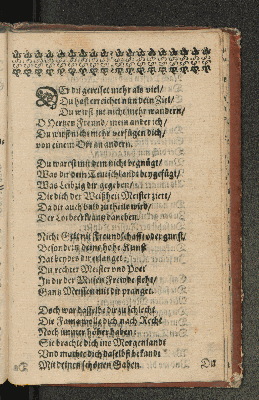 DEr du gereiset mehr als viel/
Du hast erreichet nun dein Ziel/
Du wirst jtzt nicht mehr wandern/
O Herzen Freund/ mein ander ich/
Du wirst nicht mehr verfügen dich/
von einem Ort zu andern.
Du warest mit dem nicht begnügt/
Was dir dein Teutschlandt beygefügt/
Was Leipzig dir gegeben/
Die dich der Weißheit Meister ziert/
Da dir auch bald zutheile wird/
Der Lorbeerkrantz daneben.
Nicht Schertz/ Freundschafft oder gunst/
Besondern deine hohe Kunst
Hat beydes dir erlanget:
Du rechter Meister vnd Poet
In der der Musen Frewde steht/
Gantz Meissen mit dir pranget.
Doch war dasselbe dir zu schlecht
Die Fama wolte dich nach Recht
Noch immer höher haben:
Sie brachte dich ins Morgenlandt
Vnd machte dich daselbst bekandt
Mit deinen schönen Gaben.
Du